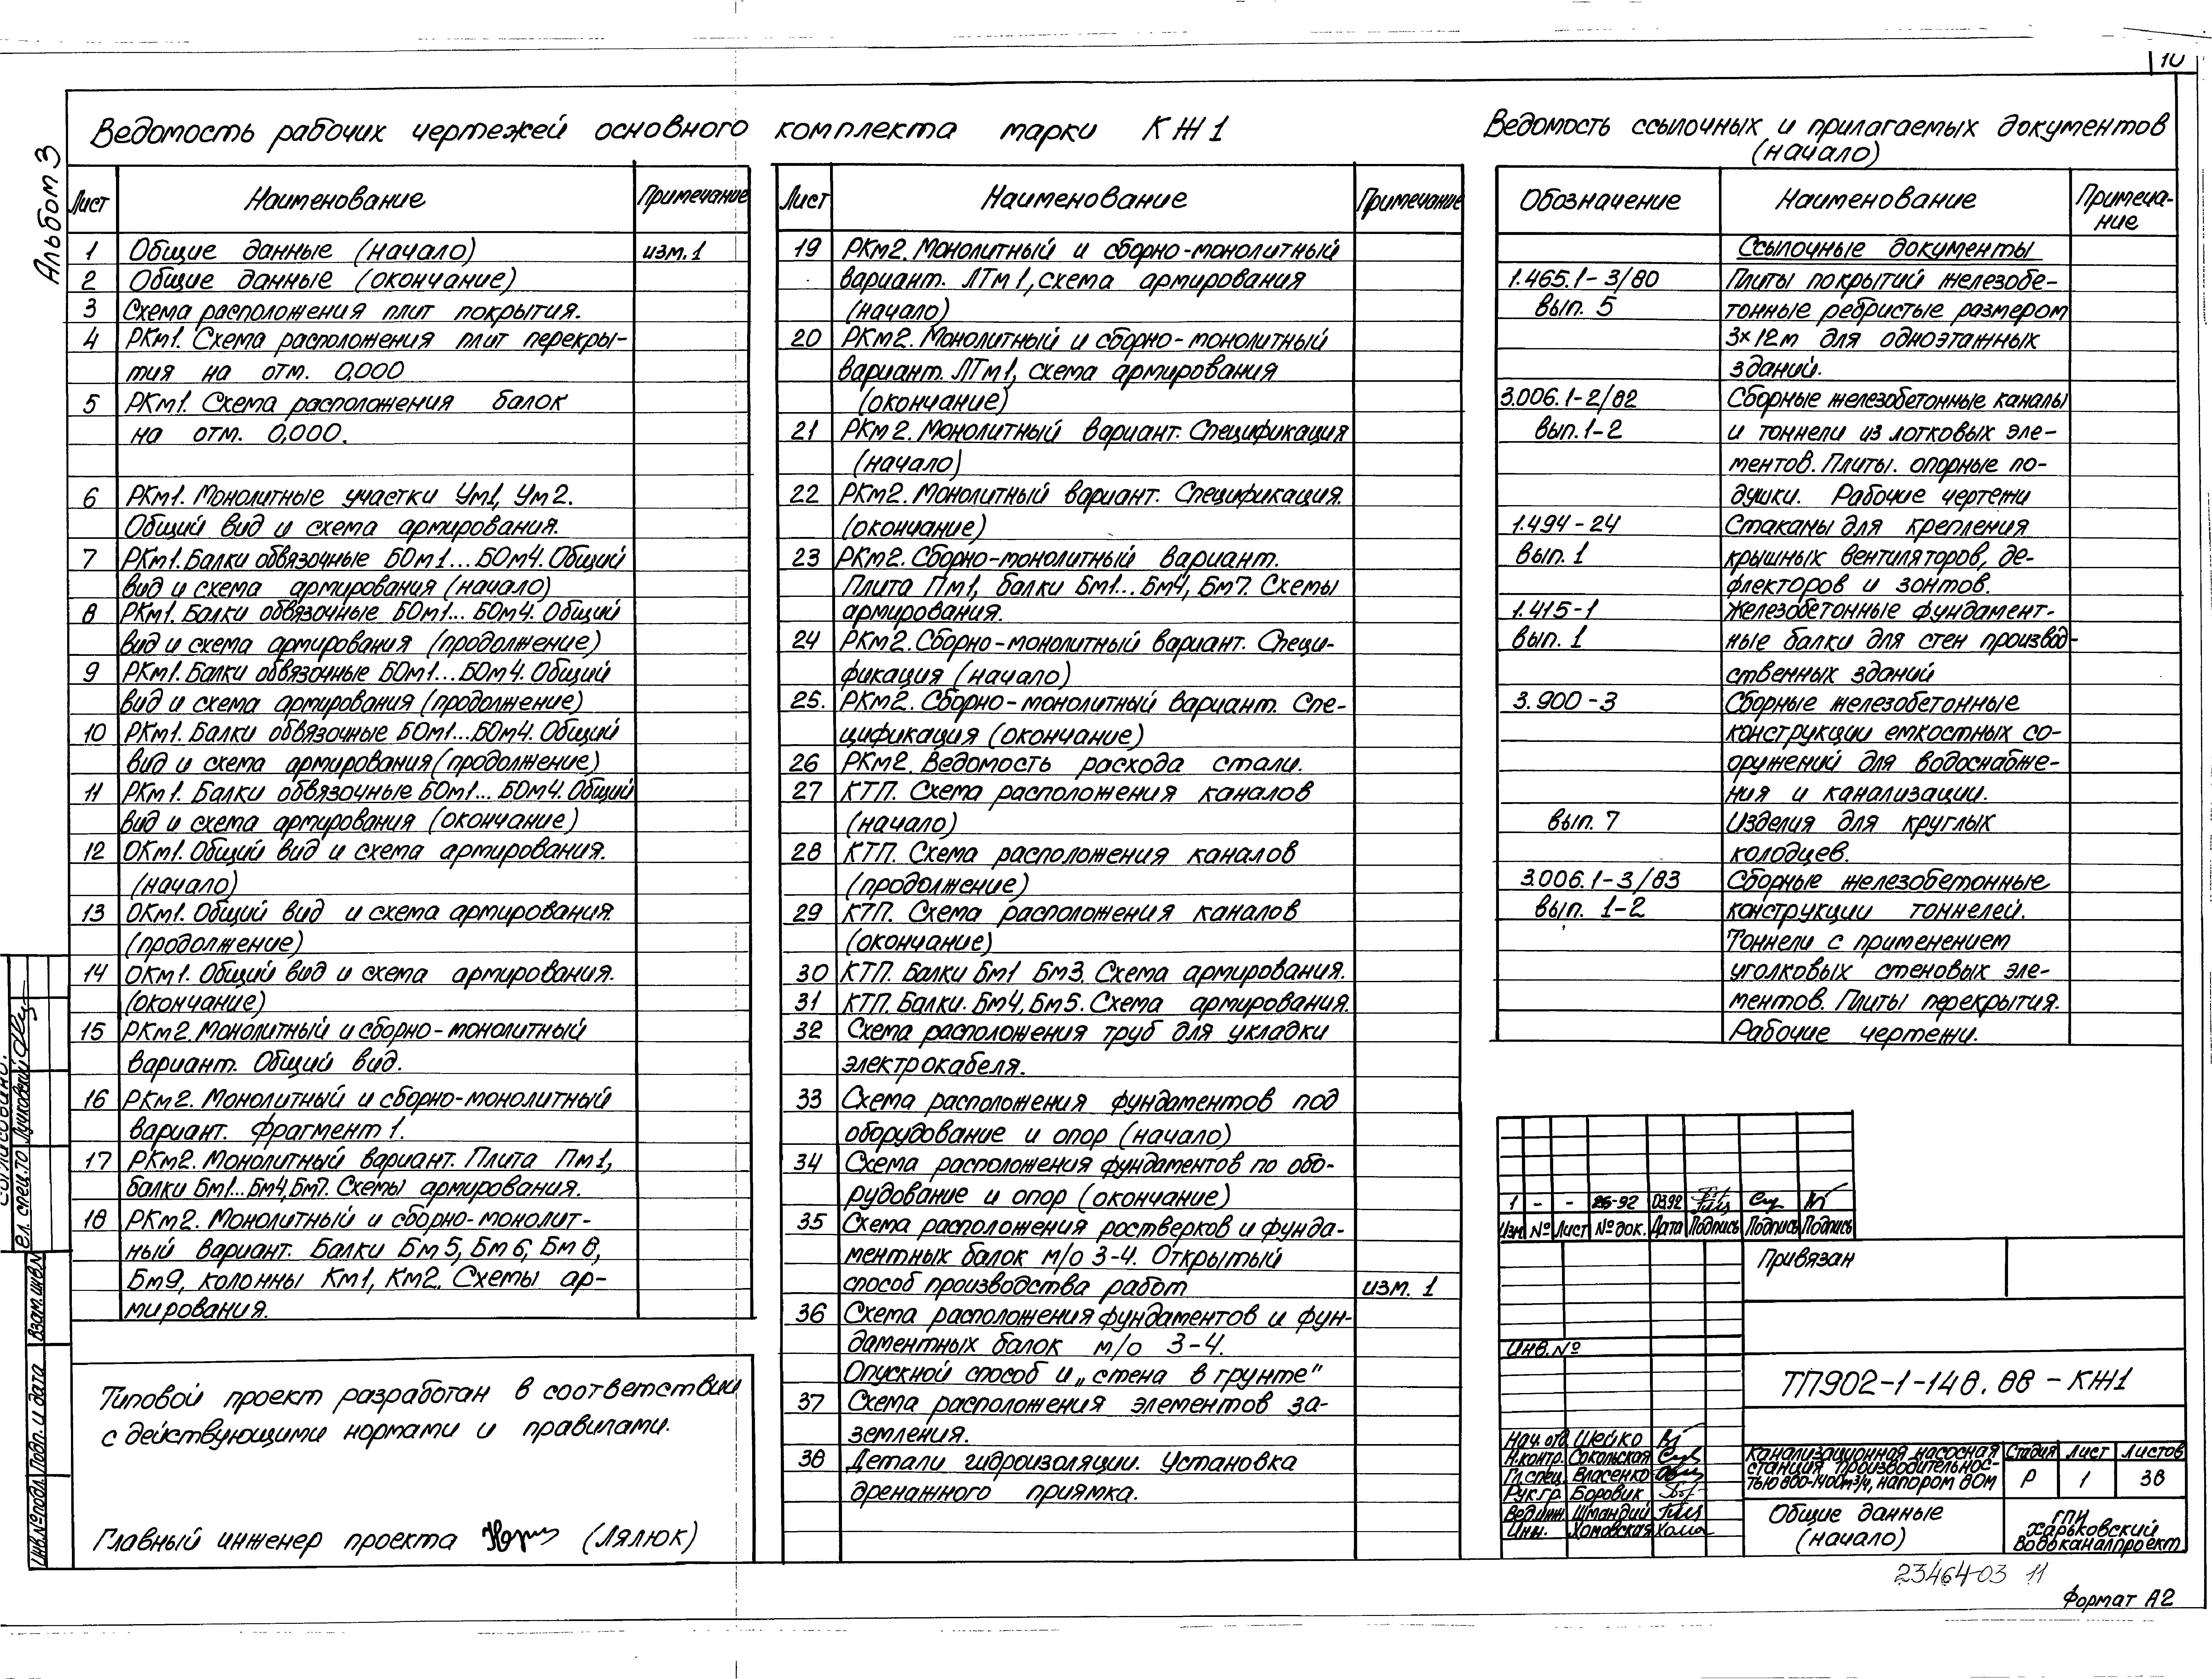 10
Альбом 3
Ведомость рабочих чертежей основного комплекта марки КЖ1
Лист Наименование Примечание
1 Общие данные (начало) изм.1
2 Общие данные (окончание)
3 Схема расположения плит покрытия.
4 РКм1. Схема расположения плит перекры-
тия на отм. 0,000
5 РКм1. Схема расположения балок
на отм. 0,000.
6 РКм1. Монолитные участки Ум1, Ум2.
Общий вид и схема армирования.
7 РКм1. Балки обвязочные БОм1...БОм4. Общий
вид и схема армирования (начало)
8 РКм1. Балки обвязочные БОм1... БОм4. Общий
вид и схема армирования (продолжение)
9 РКм1. Балки обвязочные БОм1...БОм4. Общий
вид и схема армирования (продолжение)
10 РКм1. Балки обвязочные БОм1...БОм4. Общий
вид и схема армирования (продолжение)
11 РКм1. Балки обвязочные БОм1... БОм4. Общий
вид и схема армирования (окончание)
12 ОКм1. Общий вид и схема армирования.
(начало)
13 ОКм1. Общий вид и схема армирования.
(продолжение)
14 ОКм1. Общий вид и схема армирования.
(окончание)
15 РКм2. Монолитный и сборно-монолитный
вариант. Общий вид.
16 РКм2. Монолитный и сборно-монолитный
вариант. Фрагмент 1.
17 РКм2. Монолитный вариант. Плита Пм1,
балки Бм1...Бм4, Бм7. Схемы армирования.
18 РКм2. Монолитный и сборно-монолит-
ный вариант. Балки Бм5, Бм6, Бм8,
Бм9, колонны Км1, Км2. Схемы ар-
мирования.
Типовой проект разработан в соответствии
с действующими нормами и правилами.
Главный инженер проекта (Лялюк)
Лист Наименование Примечание
19 РКм2. Монолитный и сборно-монолитный
вариант. ЛТм1, схема армирования
(начало)
20 РКм2. Монолитный и сборно-монолитный
вариант. ЛТм1, схема армирования
(окончание)
21 РКм2. Монолитный вариант. Спецификация
(начало)
22 РКм2. Монолитный вариант. Спецификация.
(окончание)
23 РКм2. Сборно-монолитный вариант.
Плита Пм1, балки Бм1...Бм4, Бм7. Схемы
армирования.
24 РКм2. Сборно-монолитный вариант. Специ-
фикация (начало)
25. РКм2. Сборно-монолитный вариант. Спе-
цификация (окончание)
26 РКм2. Ведомость расхода стали.
27 КТП. Схема расположения каналов
(начало)
28 КТП. Схема расположения каналов
(продолжение)
29 КТП. Схема расположения каналов
(окончание)
30 КТП. Балки Бм1 Бм3. Схема армирования.
31 КТП. Балки. Бм4, Бм5. Схема армирования.
32 Схема расположения труб для укладки
электрокабеля.
33 Схема расположения фундаментов под
оборудование и опор (начало)
34 Схема расположения фундаментов по обо-
рудование и опор (окончание)
35 Схема расположения ростверков и фунда-
ментных балок м/о 3-4. Открытый
способ производства работ изм. 1
36 Схема расположения фундаментов и фун-
даментных балок м/о 3-4.
Опускной способ и „стена в грунте"
37 Схема расположения элементов за-
земления.
38 Детали гидроизоляции. Установка
дренажного приямка.
Ведомость ссылочных и прилагаемых документов
(начало)
Обозначение Наименование Примеча-
ние
Ссылочные документы
1.465.1-3/80 Плиты покрытий железобе-
вып. 5 тонные ребристые размером
3×12м для одноэтажных
зданий.
3.006.1-2/82 Сборные железобетонные каналы
вып.1-2 и тоннели из лотковых эле-
ментов. Плиты. опорные по-
душки. Рабочие чертежи
1.494-24 Стаканы для крепления
вып. 1 крышных вентиляторов, де-
флекторов и зонтов.
1.415-1 Железобетонные фундамент-
вып. 1 ные балки для стен производ-
ственных зданий
3.900-3 Сборные железобетонные
конструкции емкостных со-
оружений для водоснабже-
ния и канализации.
вып. 7 Изделия для круглых
колодцев.
3.006.1-3/83 Сборные железобетонные
вып. 1-2 конструкции тоннелей.
Тоннели с применением
уголковых стеновых эле-
ментов. Плиты перекрытия.
Рабочие чертежи.
1 - - 26-92 03.92
Изм № Лист № док. Дата Подпись Подпись Подпись
Привязан
Инв. №
ТП902-1-148.88-КЖ1
Нач. отд. Шейко
Н.контр. Сокольская
Гл.спец. Власенко
Рук.гр. Боровик
Вед.инж. Шмандий
Инж. Хомовская
Канализационная насосная
станция производительнос-
тью 800-1400м³/ч, напором 80м
Стадия Лист Листов
Р 1 38
Общие данные
(начало)
ГПИ
Харьковский
Водоканалпроект
23464-03 11
Формат А2
Согласовано:
Гл. спец. ТО Луковский
Взам. инв. №
Подп. и дата
Инв.№ подл.